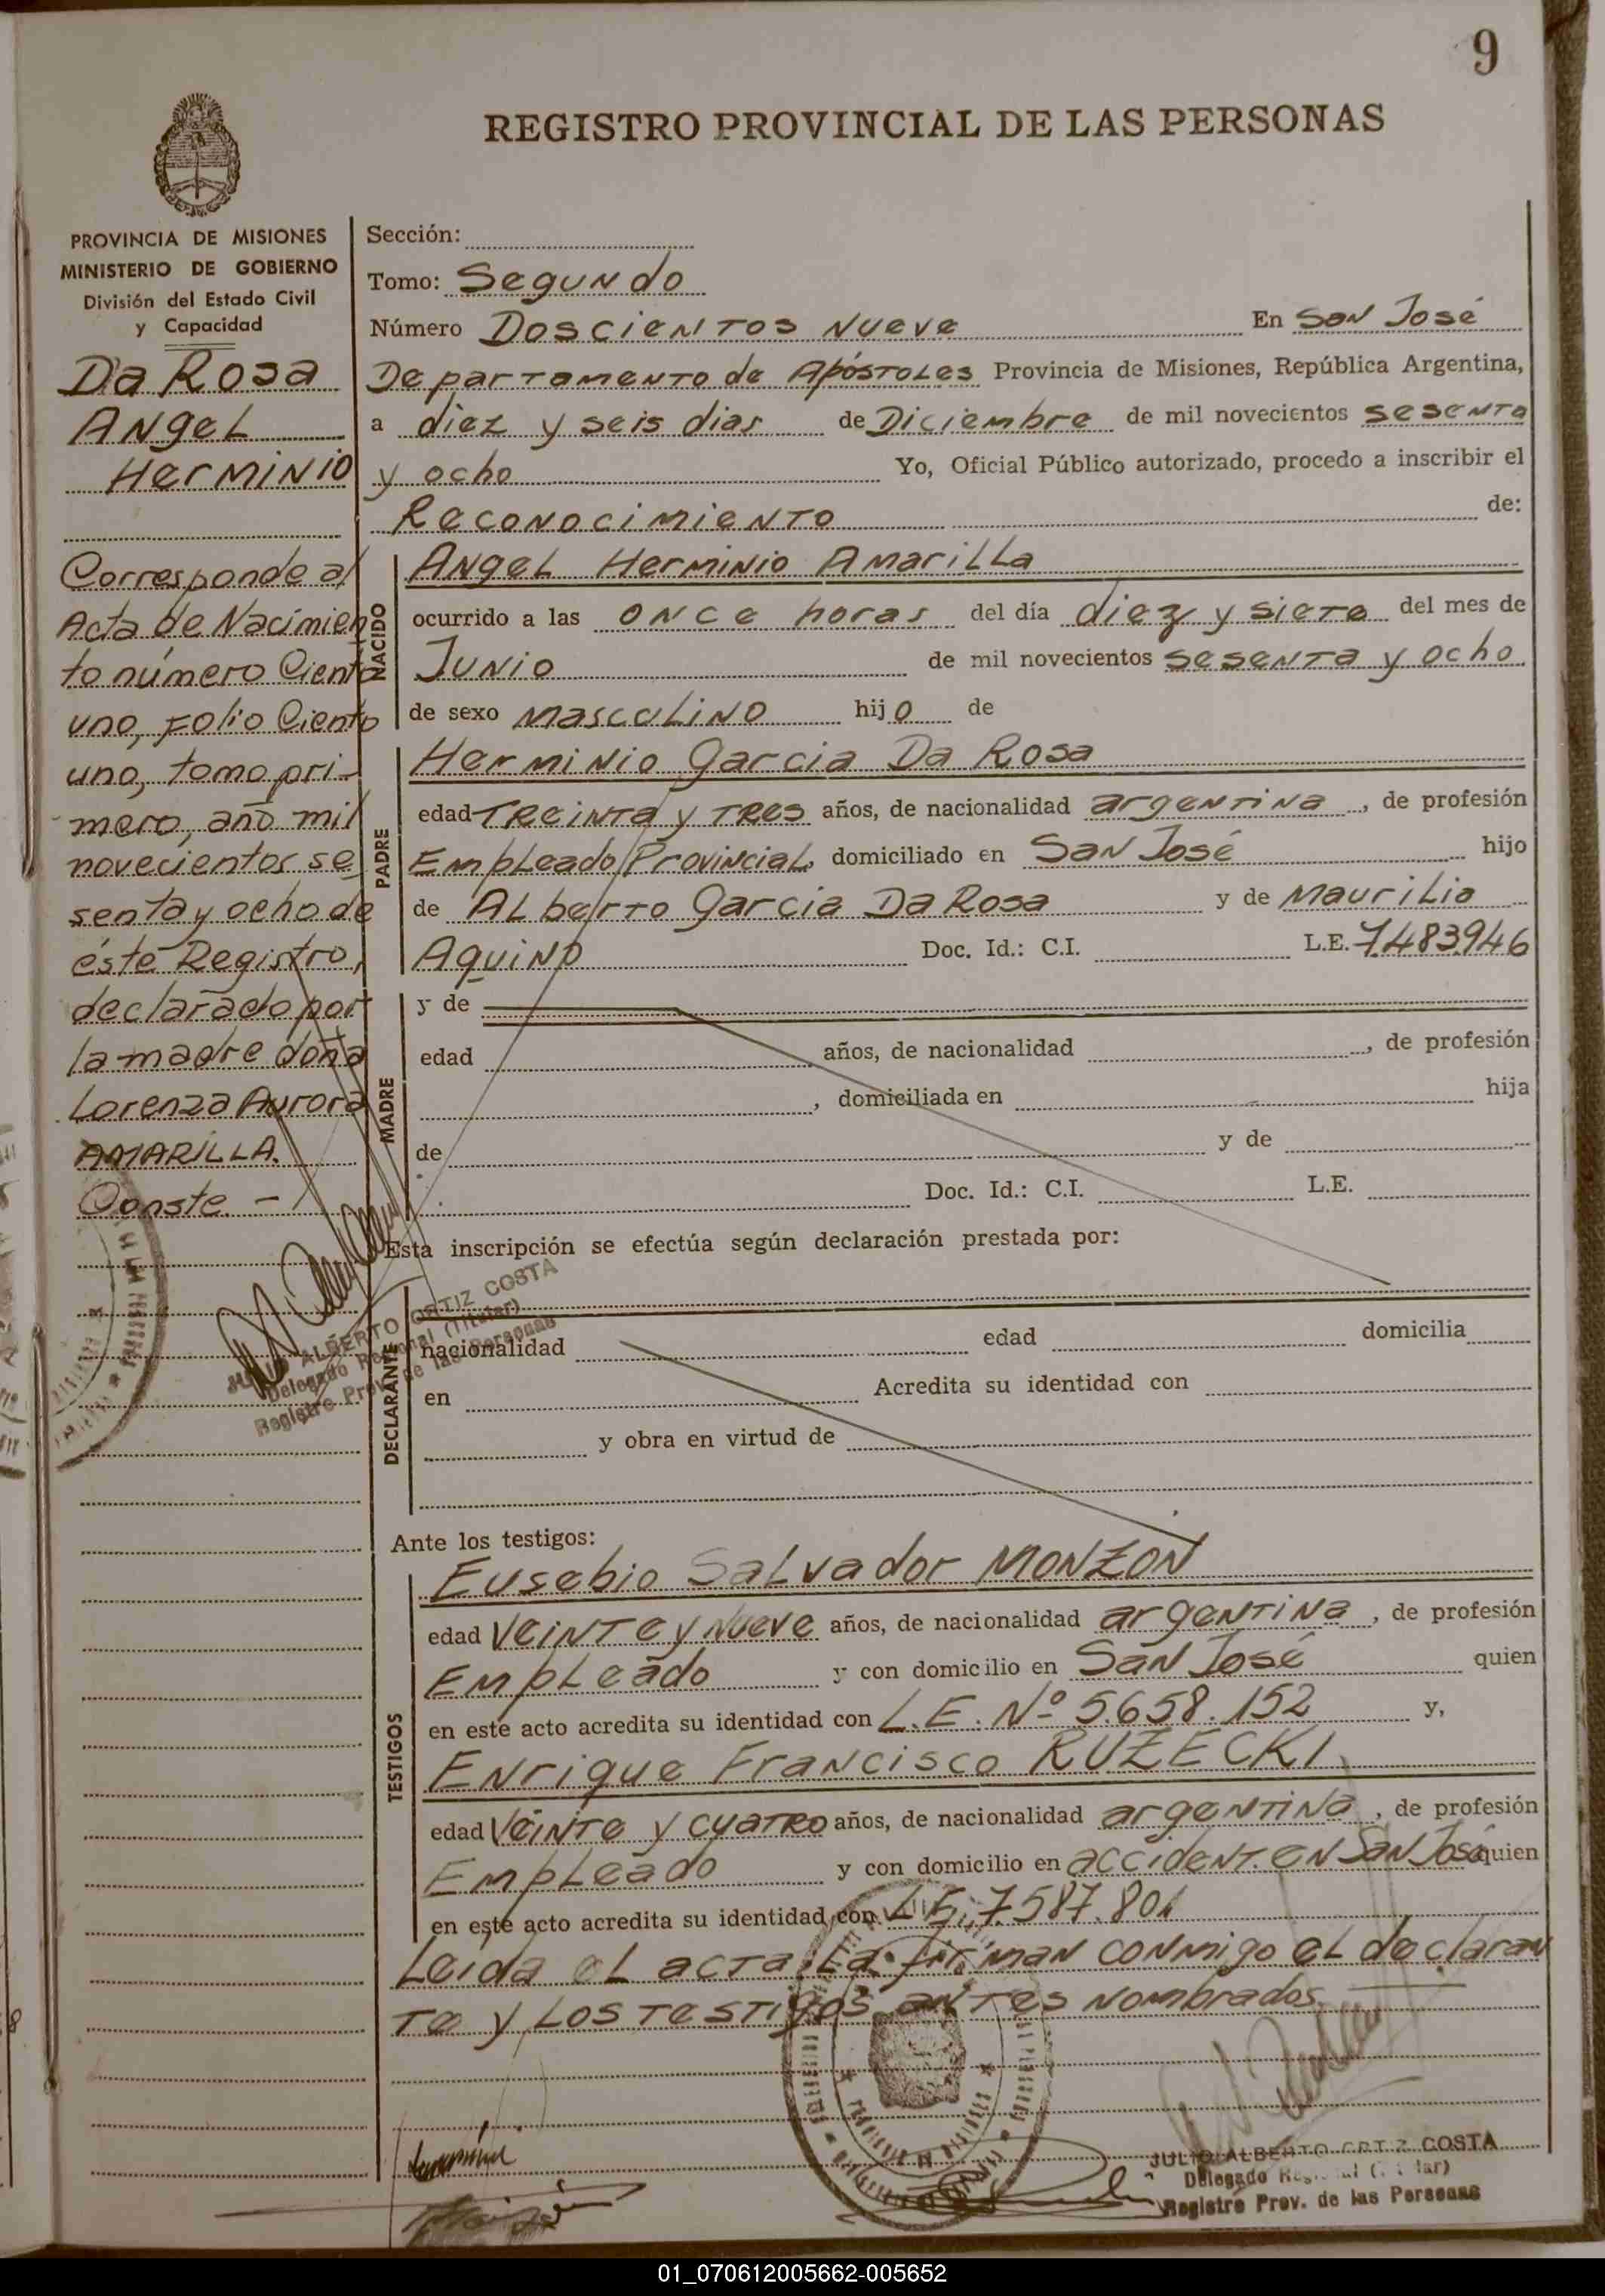 9
REGISTRO PROVINCIAL DE LAS PERSONAS
PROVINCIA DE MISIONES
MINISTERIO DE GOBIERNO
División del Estado Civil
y Capacidad
Da Rosa
Angel
Herminio
Corresponde al
Acta de Nacimien
to número Ciento
uno, Folio Ciento
uno, tomo pri-
mero, año mil
novecientos se
senta y ocho de
éste Registro,
declarado por
la madre doña
Lorenza Aurora
AMARILLA.
Conste. -
JULIO ALBERTO ORTIZ COSTA
Delegado Regional (Titular)
Registro Prov. de las Personas
Sección:
Tomo: Segundo
Número Doscientos nueve En San José
Departamento de Apóstoles Provincia de Misiones, República Argentina,
a diez y seis dias de Diciembre de mil novecientos sesenta
y ocho Yo, Oficial Público autorizado, procedo a inscribir el
Reconocimiento de:
NACIDO
Angel Herminio Amarilla
ocurrido a las once horas del día diez y siete del mes de
Junio de mil novecientos sesenta y ocho
de sexo masculino hijo de
PADRE
Herminio Garcia Da Rosa
edad Treinta y Tres años, de nacionalidad argentina, de profesión
Empleado Provincial, domiciliado en San José hijo
de Alberto Garcia Da Rosa y de Maurilia
Aquino Doc. Id.: C.I. L.E. 7.483.946
MADRE
y de
edad años, de nacionalidad , de profesión
, domiciliada en hija
de y de
Doc. Id.: C.I. L.E.
Esta inscripción se efectúa según declaración prestada por:
DECLARANTE
nacionalidad edad domicilia
en Acredita su identidad con
y obra en virtud de
Ante los testigos:
TESTIGOS
Eusebio Salvador MONZON
edad Veinte y Nueve años, de nacionalidad argentina, de profesión
Empleado y con domicilio en San José quien
en este acto acredita su identidad con L.E. Nº 5.658.152 y,
Enrique Francisco RUZECKI
edad Veinte y cuatro años, de nacionalidad argentina, de profesión
Empleado y con domicilio en accident. en San José quien
en este acto acredita su identidad con L.E. 7.587.801
Leída el acta La firman conmigo el declaran
te y los testigos antes nombrados.
JULIO ALBERTO ORTIZ COSTA
Delegado Regional (Titular)
Registro Prov. de las Personas
01_070612005662-005652